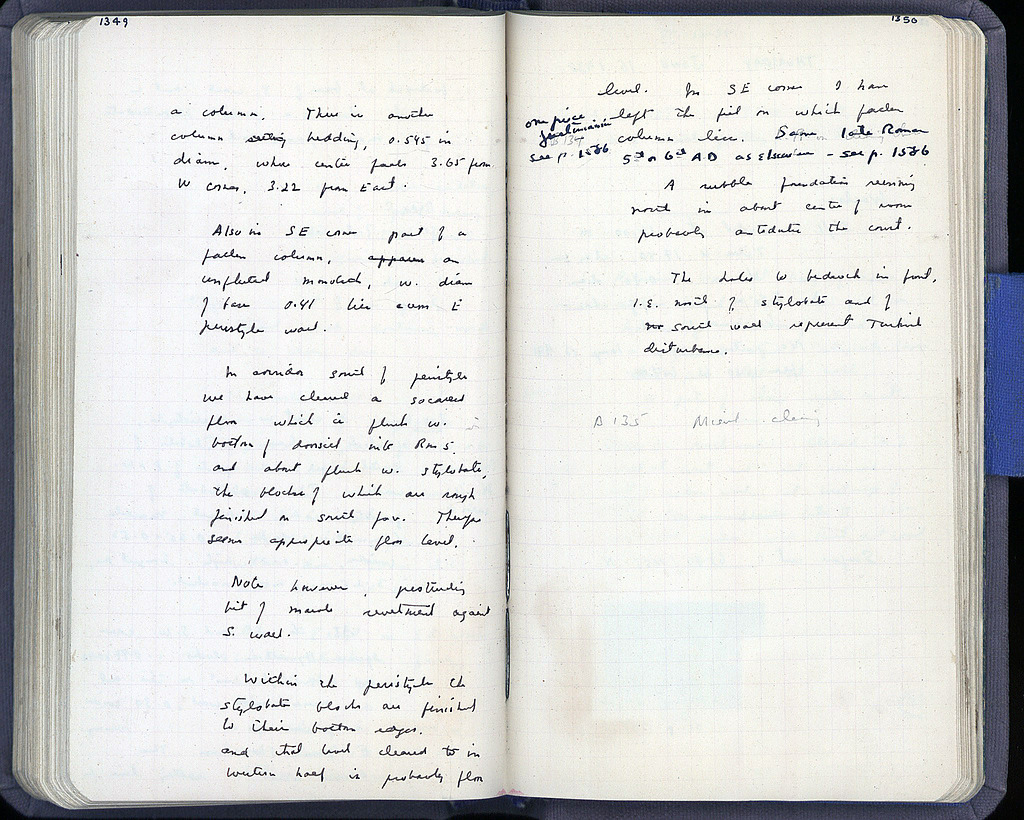 1349
a column. There is another
column bedding, 0.545 in
diam. whose center falls 3.65 from
W corner, 3.22 from East.
Also in SE corner part of a
fallen column, apparen an
unfluted monolith, w. diam
of base 0.41 lies across E
peristyle wall.
In corridor south of peristyle
we have cleared a
floor which is flush w.
bottom of doorsill into Rm 5.
and about flush w. stylobate,
the blocks of which are rough
finished on south face. Therefore
seems appropriate floor level.
Note however, protruding
bit of marble revetment against
S. wall.
Within the peristyle the
stylobate blocks are finished
to their bottom edges.
and that level cleared to in
western half is probably floor
1350
level. In SE corner I have
left the fill on which fallen
column lies. Same late Roman
5th or 6th A.D as elsewhere - see p. 1586
one piece
Justinianic
B 134
see p. 1586
A rubble foundation running
north in about centre of room
probably antedates the court.
The holes to bedrock in front,
i.e. north of stylobate and of
south wall represent Turkish
disturbance.
B 135 cleaning